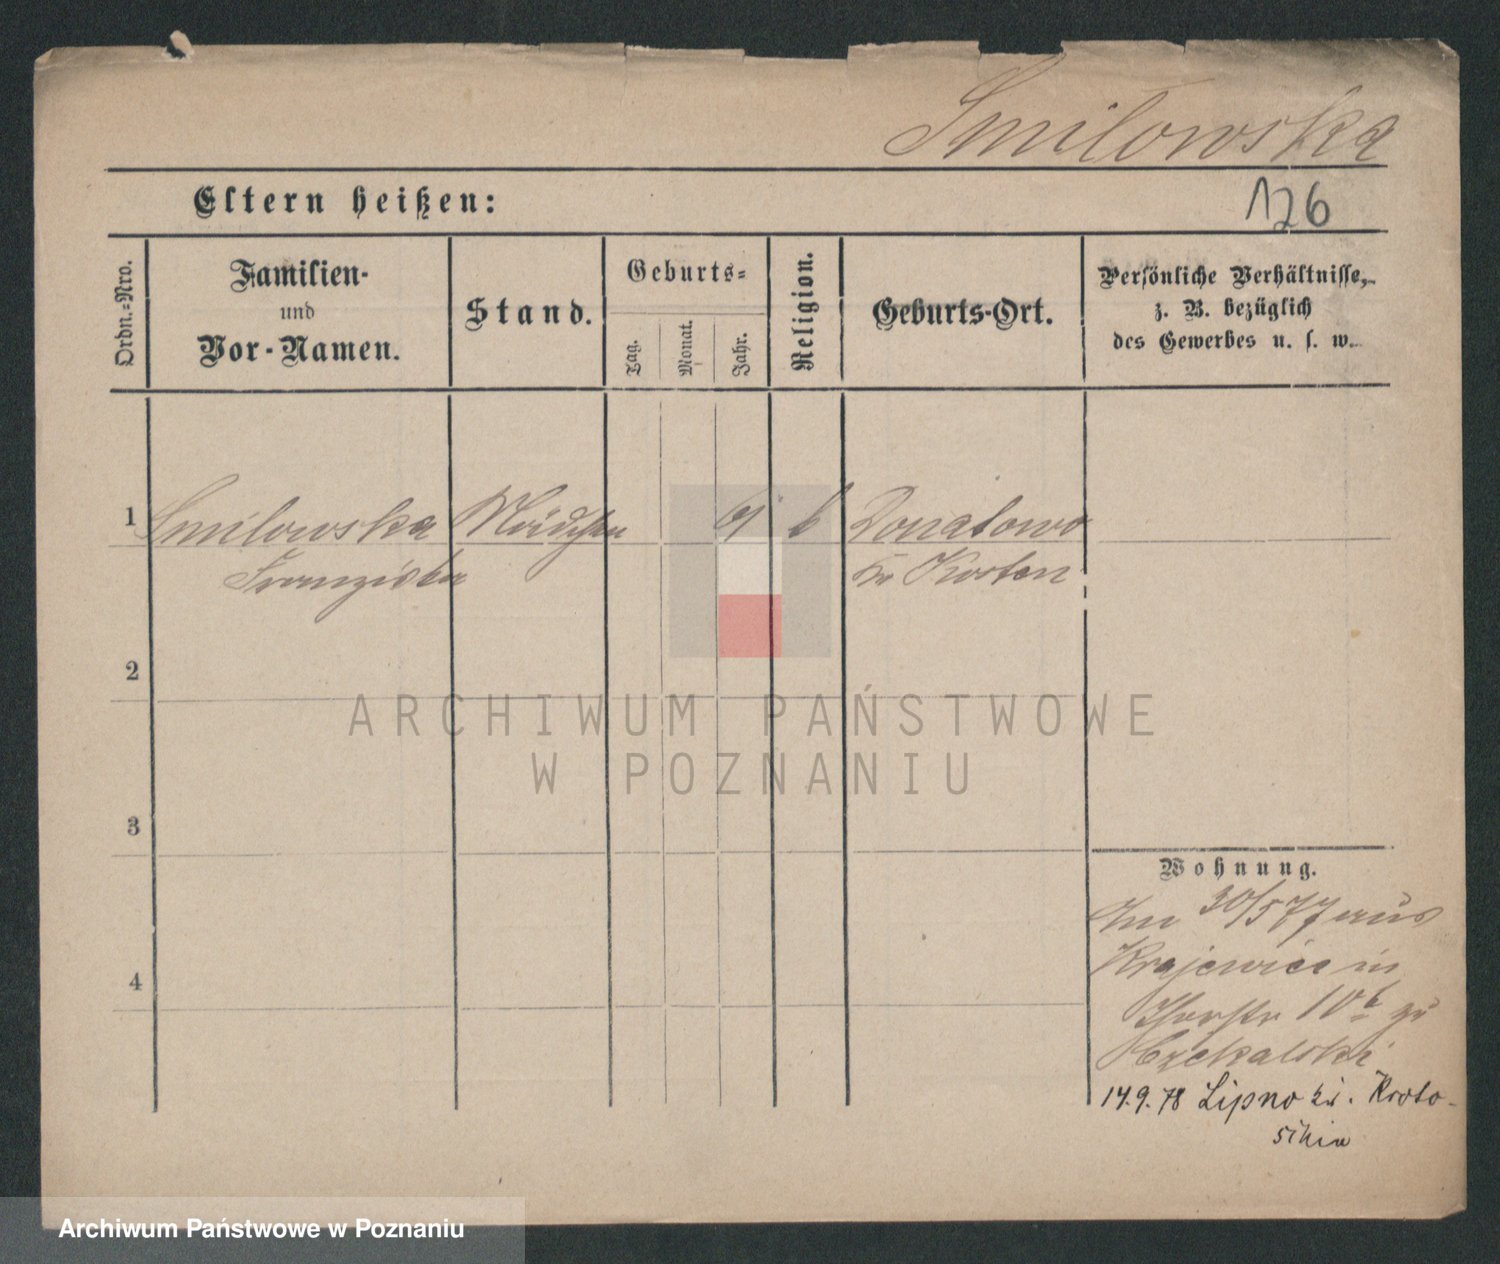 Smilowska
126
Eltern heißen:
Ordn.-Nro.
Familien-
und
Vor-Namen.
Stand.
Geburts-
Tag.
Monat.
Jahr.
Religion.
Geburts-Ort.
Persönliche Verhältnisse,
z. B. bezüglich
des Gewerbes u. s. w.
1 Smilowska Mädchen 61 k Donatowo
Franziska Kr Kosten
2
ARCHIWUM PAŃSTWOWE
W POZNANIU
3
Wohnung.
30/5 77 aus
4
Krajewice in
10b zu
Czekalski
14.9.78 Lipno Kr. Kroto-
schin
Archiwum Państwowe w Poznaniu